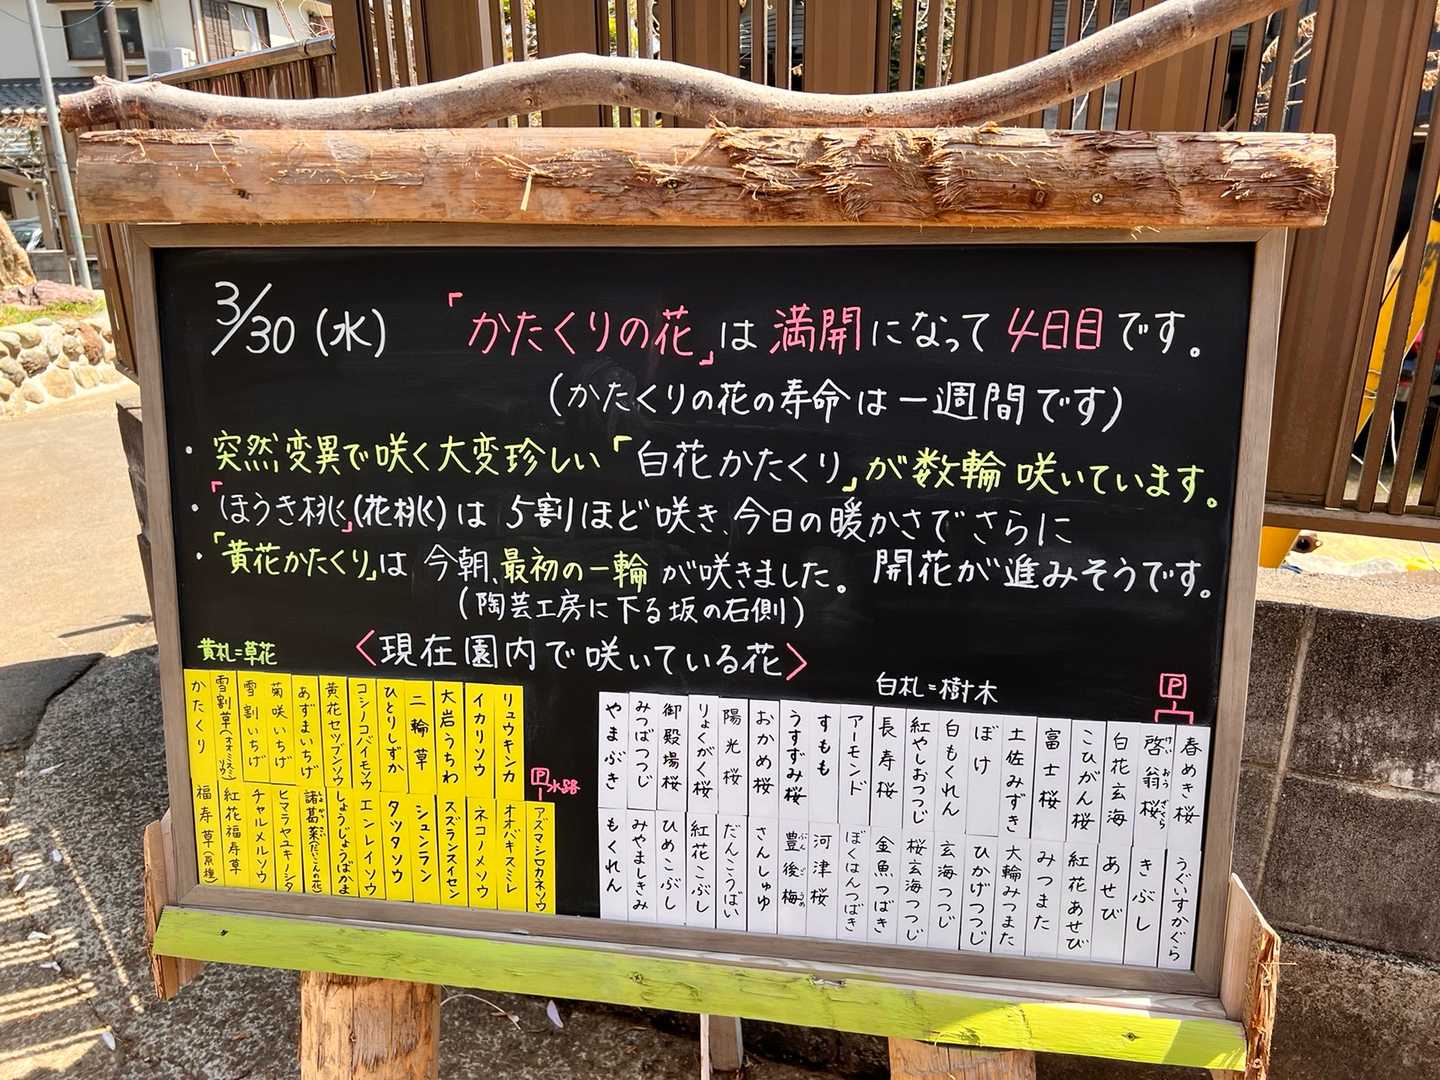 3/30(水) 「かたくりの花」は満開になって4日目です。
(かたくりの花の寿命は一週間です)
・突然変異で咲く大変珍しい「白花かたくり」が数輪咲いています。
・「ほうき桃」(花桃)は5割ほど咲き、今日の暖かさでさらに
開花が進みそうです。
・「黄花かたくり」は今朝、最初の一輪が咲きました。
(陶芸工房に下る坂の右側)
<現在園内で咲いている花>
黄札=草花
かたくり
雪割草(オオミスミソウ)
雪割いちげ
菊咲いちげ
あずまいちげ
黄花セツブンソウ
コシノコバイモソウ
ひとりしずか
二輪草
大岩うちわ
イカリソウ
リュウキンカ
P水路
福寿草(原種)
紅花福寿草
チャルメルソウ
ヒマラヤユキノシタ
諸葛菜(だいこんの花)
しょうじょうばかま
エンレイソウ
タツタソウ
シュンラン
スズランスイセン
ネコノメソウ
オオバキスミレ
アズマシロカネソウ
白札=樹木
P
やまぶき
みつばつつじ
御殿場桜
りょくがく桜
陽光桜
おかめ桜
うすずみ桜
すもも
アーモンド
長寿桜
紅やしおつつじ
白もくれん
ぼけ
土佐みずき
富士桜
こひがん桜
白花玄海
啓翁桜
けいおうざくら
春めき桜
もくれん
みやましきみ
ひめこぶし
紅花こぶし
だんこうばい
さんしゅゆ
豊後梅
ぶんごうめ
河津桜
ぼくはんつばき
金魚つばき
桜玄海つつじ
玄海つつじ
ひかげつつじ
大輪みつまた
みつまた
紅花あせび
あせび
きぶし
うぐいすかぐら